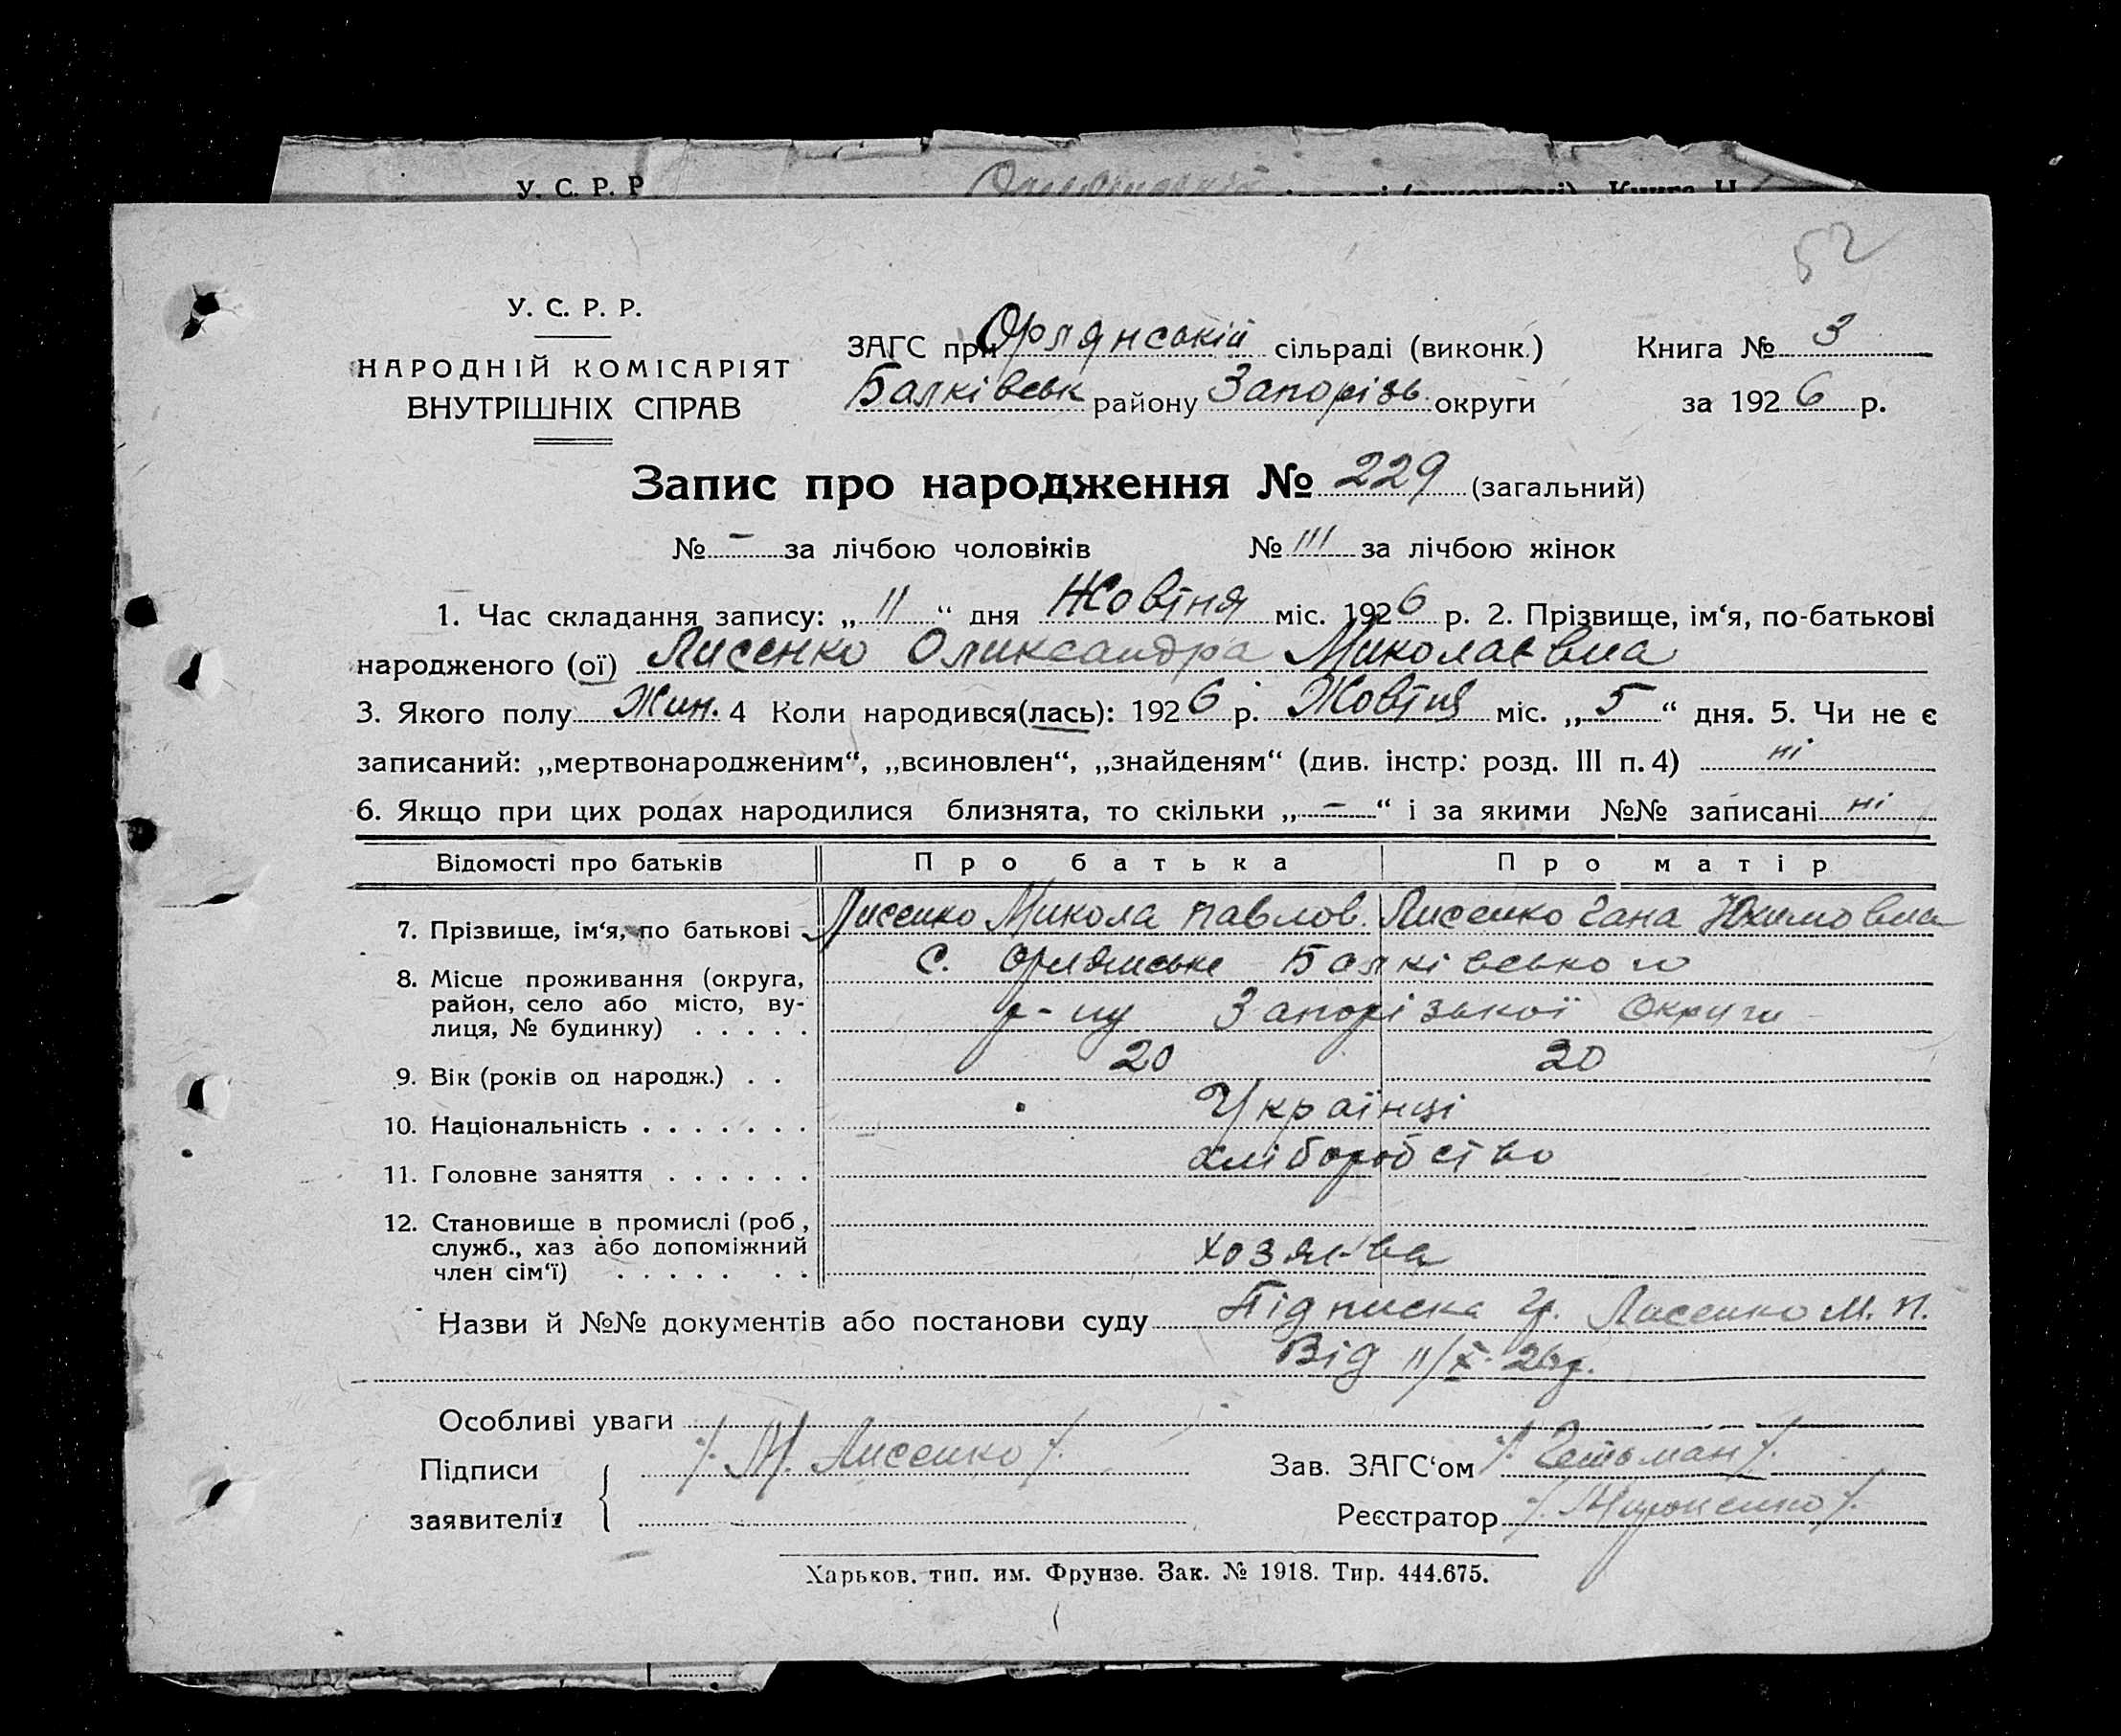 У. С. Р. Р
52
У. С. Р. Р.
НАРОДНІЙ КОМІСАРІЯТ
ВНУТРІШНІХ СПРАВ
ЗАГС при Орлянській сільраді (виконк.)
Балківськ району Запорізь. округи
Книга № 3
за 1926 р.
Запис про народження № 229 (загальний)
№ - за лічбою чоловіків № 111 за лічбою жінок
1. Час складання запису: „11“ дня Жовтня міс. 1926 р. 2. Прізвище, ім‘я, по-батькові
народженого (ої) Лисенко Олександра Миколаєвна
3. Якого полу Жин. 4 Коли народився(лась): 1926 р. Жовтня міс. „5“ дня. 5. Чи не є
записаний: „мертвонародженим“, „всиновлен“, „знайденям“ (див. інстр. розд. III п. 4) ні
6. Якщо при цих родах народилися близнята, то скільки „-“ і за якими №№ записані ні
Відомості про батьків Про батька Про матір
7. Прізвище, ім‘я, по батькові Лисенко Микола Павлов. Лисенко Гана Юхимовна
8. Місце проживання (округа, район, село або місто, вулиця, № будинку) с. Орлянське Балківського
р-ну Запорізької Округи
9. Вік (років од народж.) . . 20 20
10. Національність . . . . . . . Українці
11. Головне заняття . . . . . . хліборобство
12. Становище в промислі (роб, служб., хаз або допоміжний член сім‘ї) . . . . . . . хозяїва
Назви й №№ документів або постанови суду Підписка гр. Лисенко М. П.
Від 11/X-26р.
Особливі уваги
Підписи
заявителів
/. М. Лисенко /.
Зав. ЗАГС‘ом /. Гетьман /.
Реєстратор /. Мироненко /.
Харьков. тип. им. Фрунзе. Зак. № 1918. Тир. 444.675.